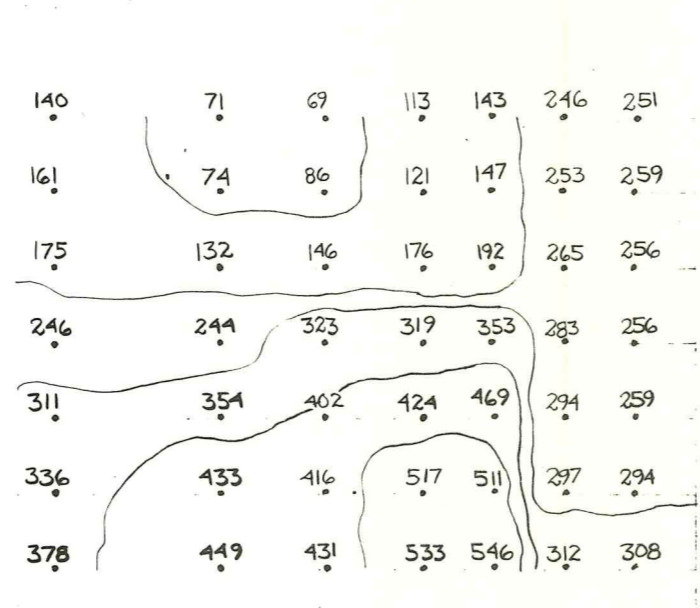 140 71 69 113 143 246 251
161 74 86 121 147 253 259
175 132 146 176 192 265 256
246 244 323 319 353 283 256
311 354 402 424 469 294 259
336 433 416 517 511 297 294
378 449 431 533 546 312 308